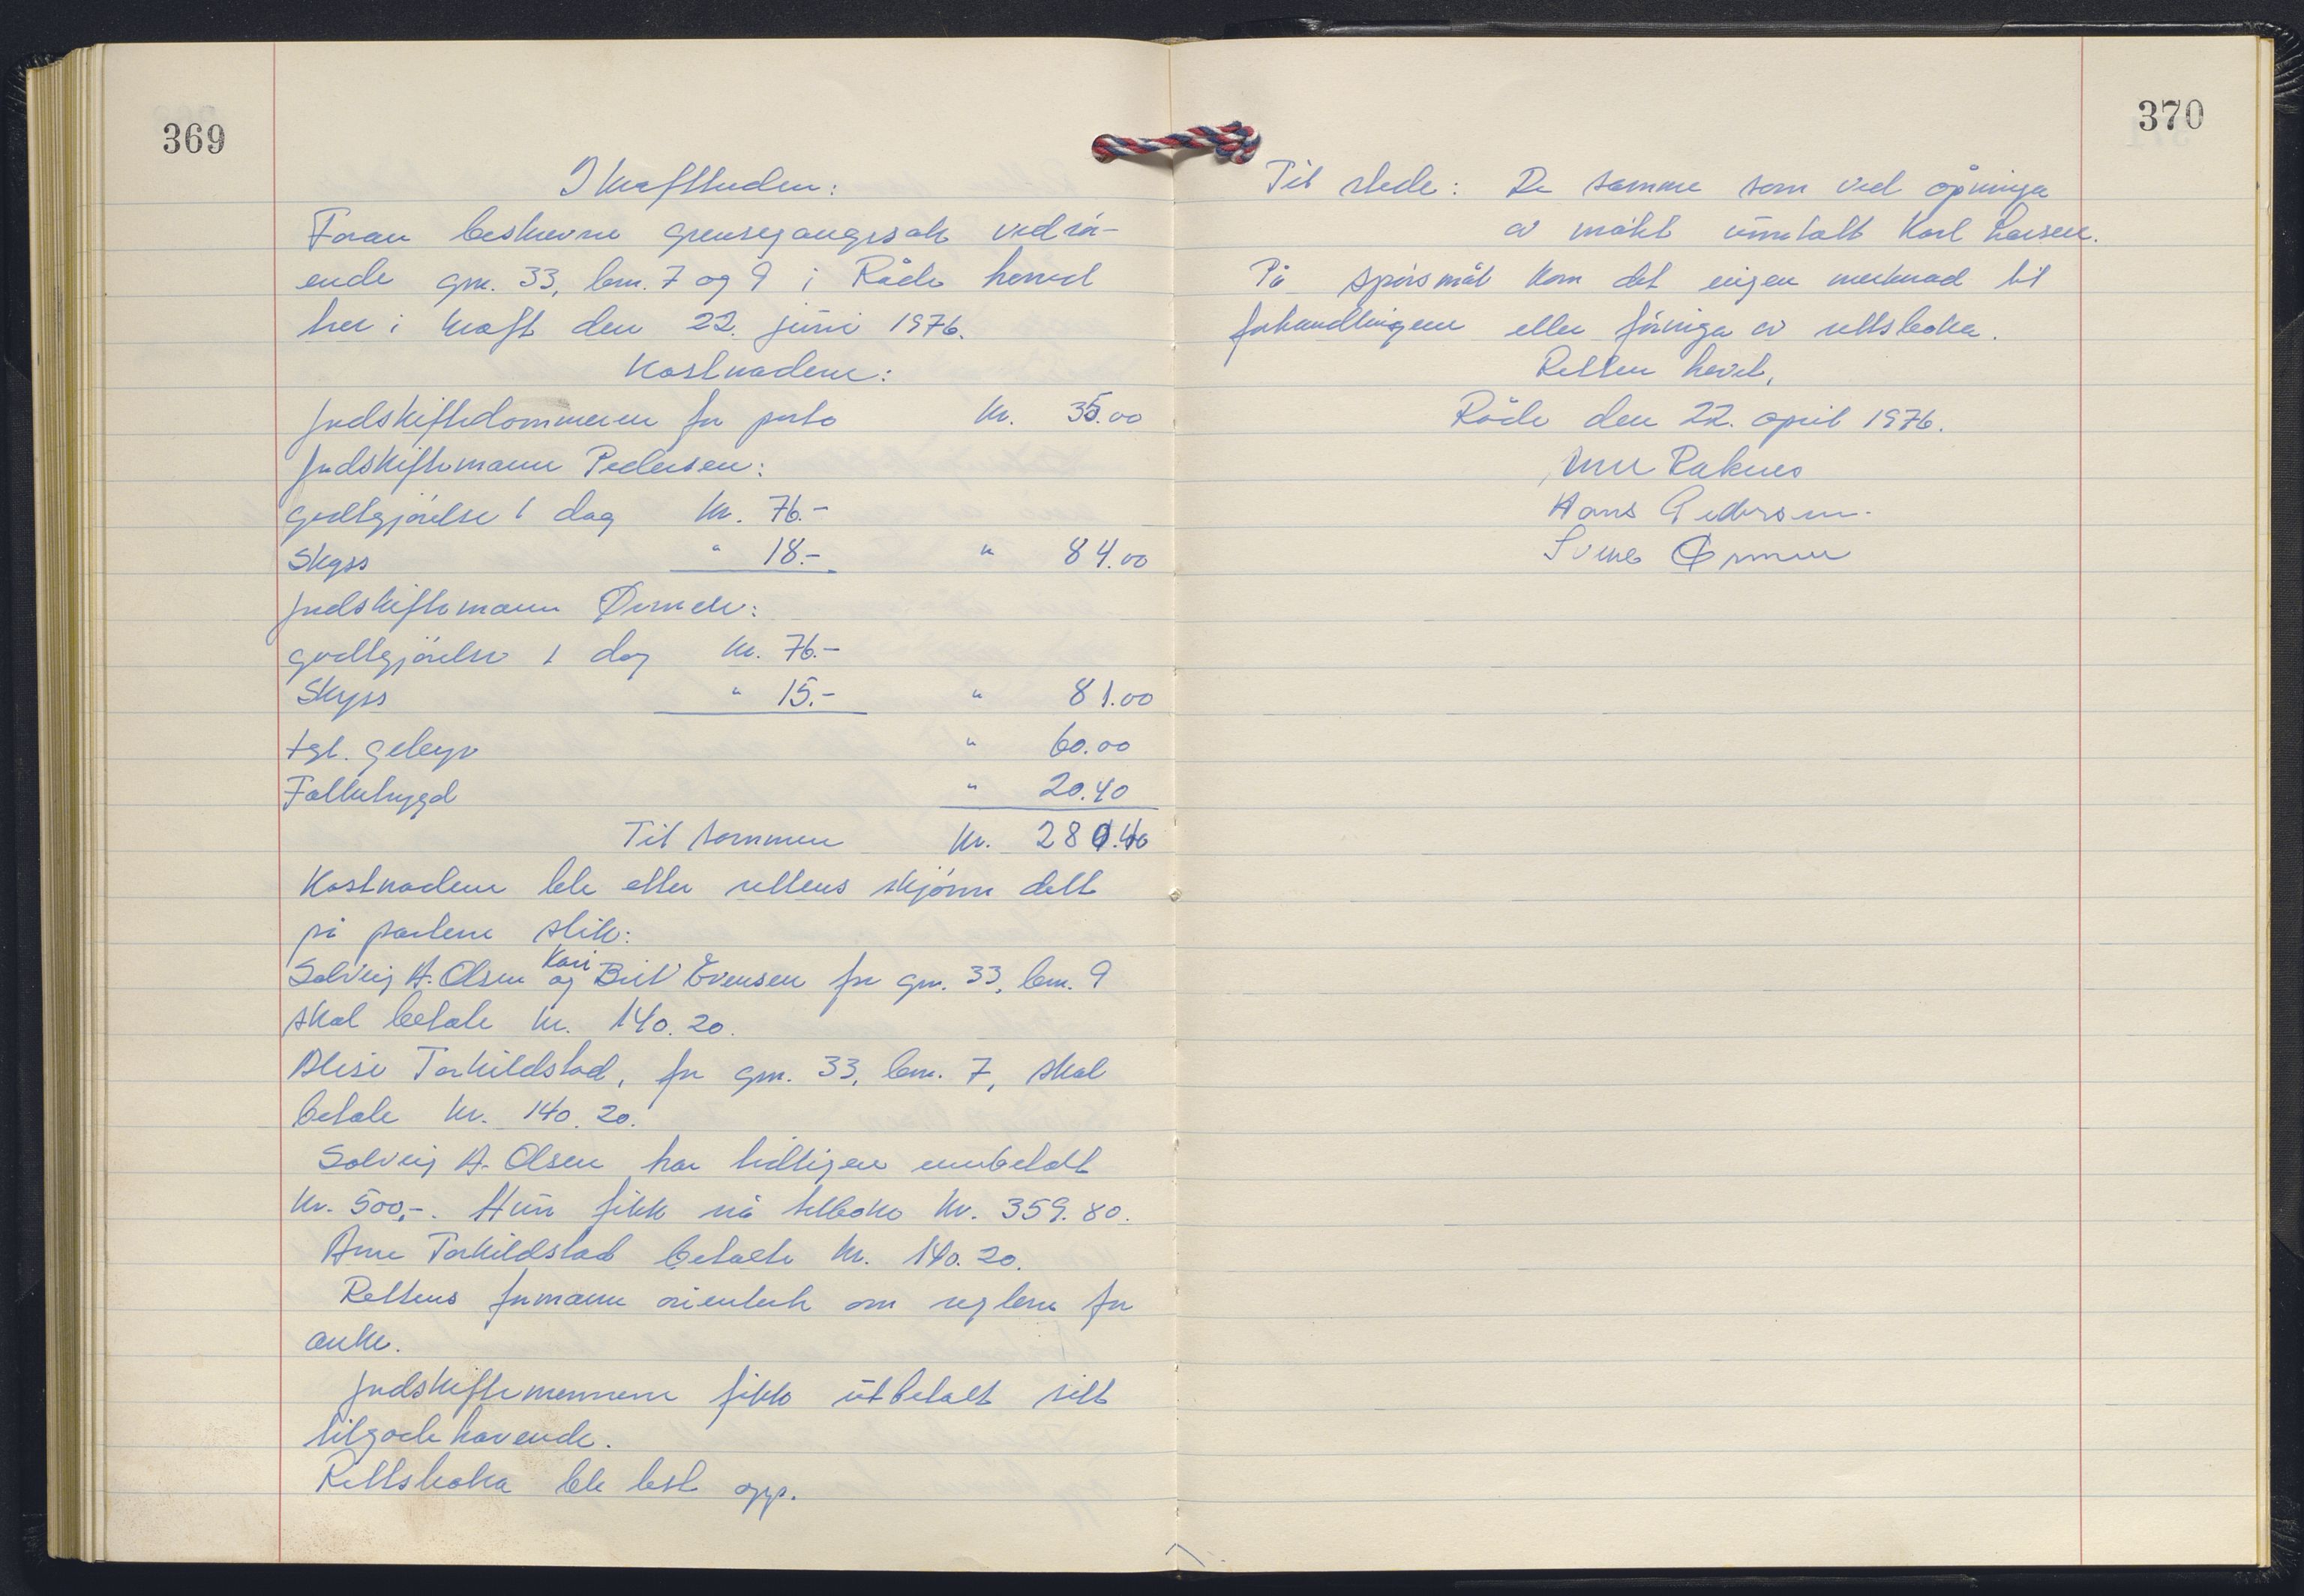 369
Ikraftteden:
Foran beskrevne grensegangssak vedrö-
ende gnr. 33, bnr. 7 og 9 i Råde herred
trer i kraft den 22. juni 1976.
Kostnadene:
Jordskiftedommeren for porto kr. 35.00
Jordskiftemann Pedersen:
godtgjörelse 1 dag kr. 76.-
Skyss " 18.- " 84.00
Jordskiftemann Ørmen:
godtgjörelse 1 dag kr. 76.-
Skyss " 15.- " 81.00
tgl. gebyr " 60.00
Folketrygd " 20.40
Til sammen kr. 280.40
Kostnadene ble etter rettens skjönn delt
på partene slik:
Kari
Solveig A. Olsen og Brit Evensen for gnr. 33, bnr. 9
skal betale kr. 140.20.
Alise Torkildstad, for gnr. 33, bnr. 7, skal
betale kr. 140.20.
Solveig A. Olsen har tidligere innbetalt
kr. 500,-. Hun fikk nå tilbake kr. 359.80.
Arne Torkildstad betalte kr. 140.20.
Rettens formann orienterte om reglene for
anke.
Jordskiftemennene fikk utbetalt sitt
tilgodehavende.
Rettsboka ble lest opp.
370
Til stede: De samme som ved åpninga
av mötet unntatt Karl Larsen.
På spörsmål kom det ingen merknad til
forhandlingene eller föringa av rettsboka.
Retten hevet,
Råde den 22. april 1976.
Arne Raknes
Hans Pedersen.
Svend Ørmen